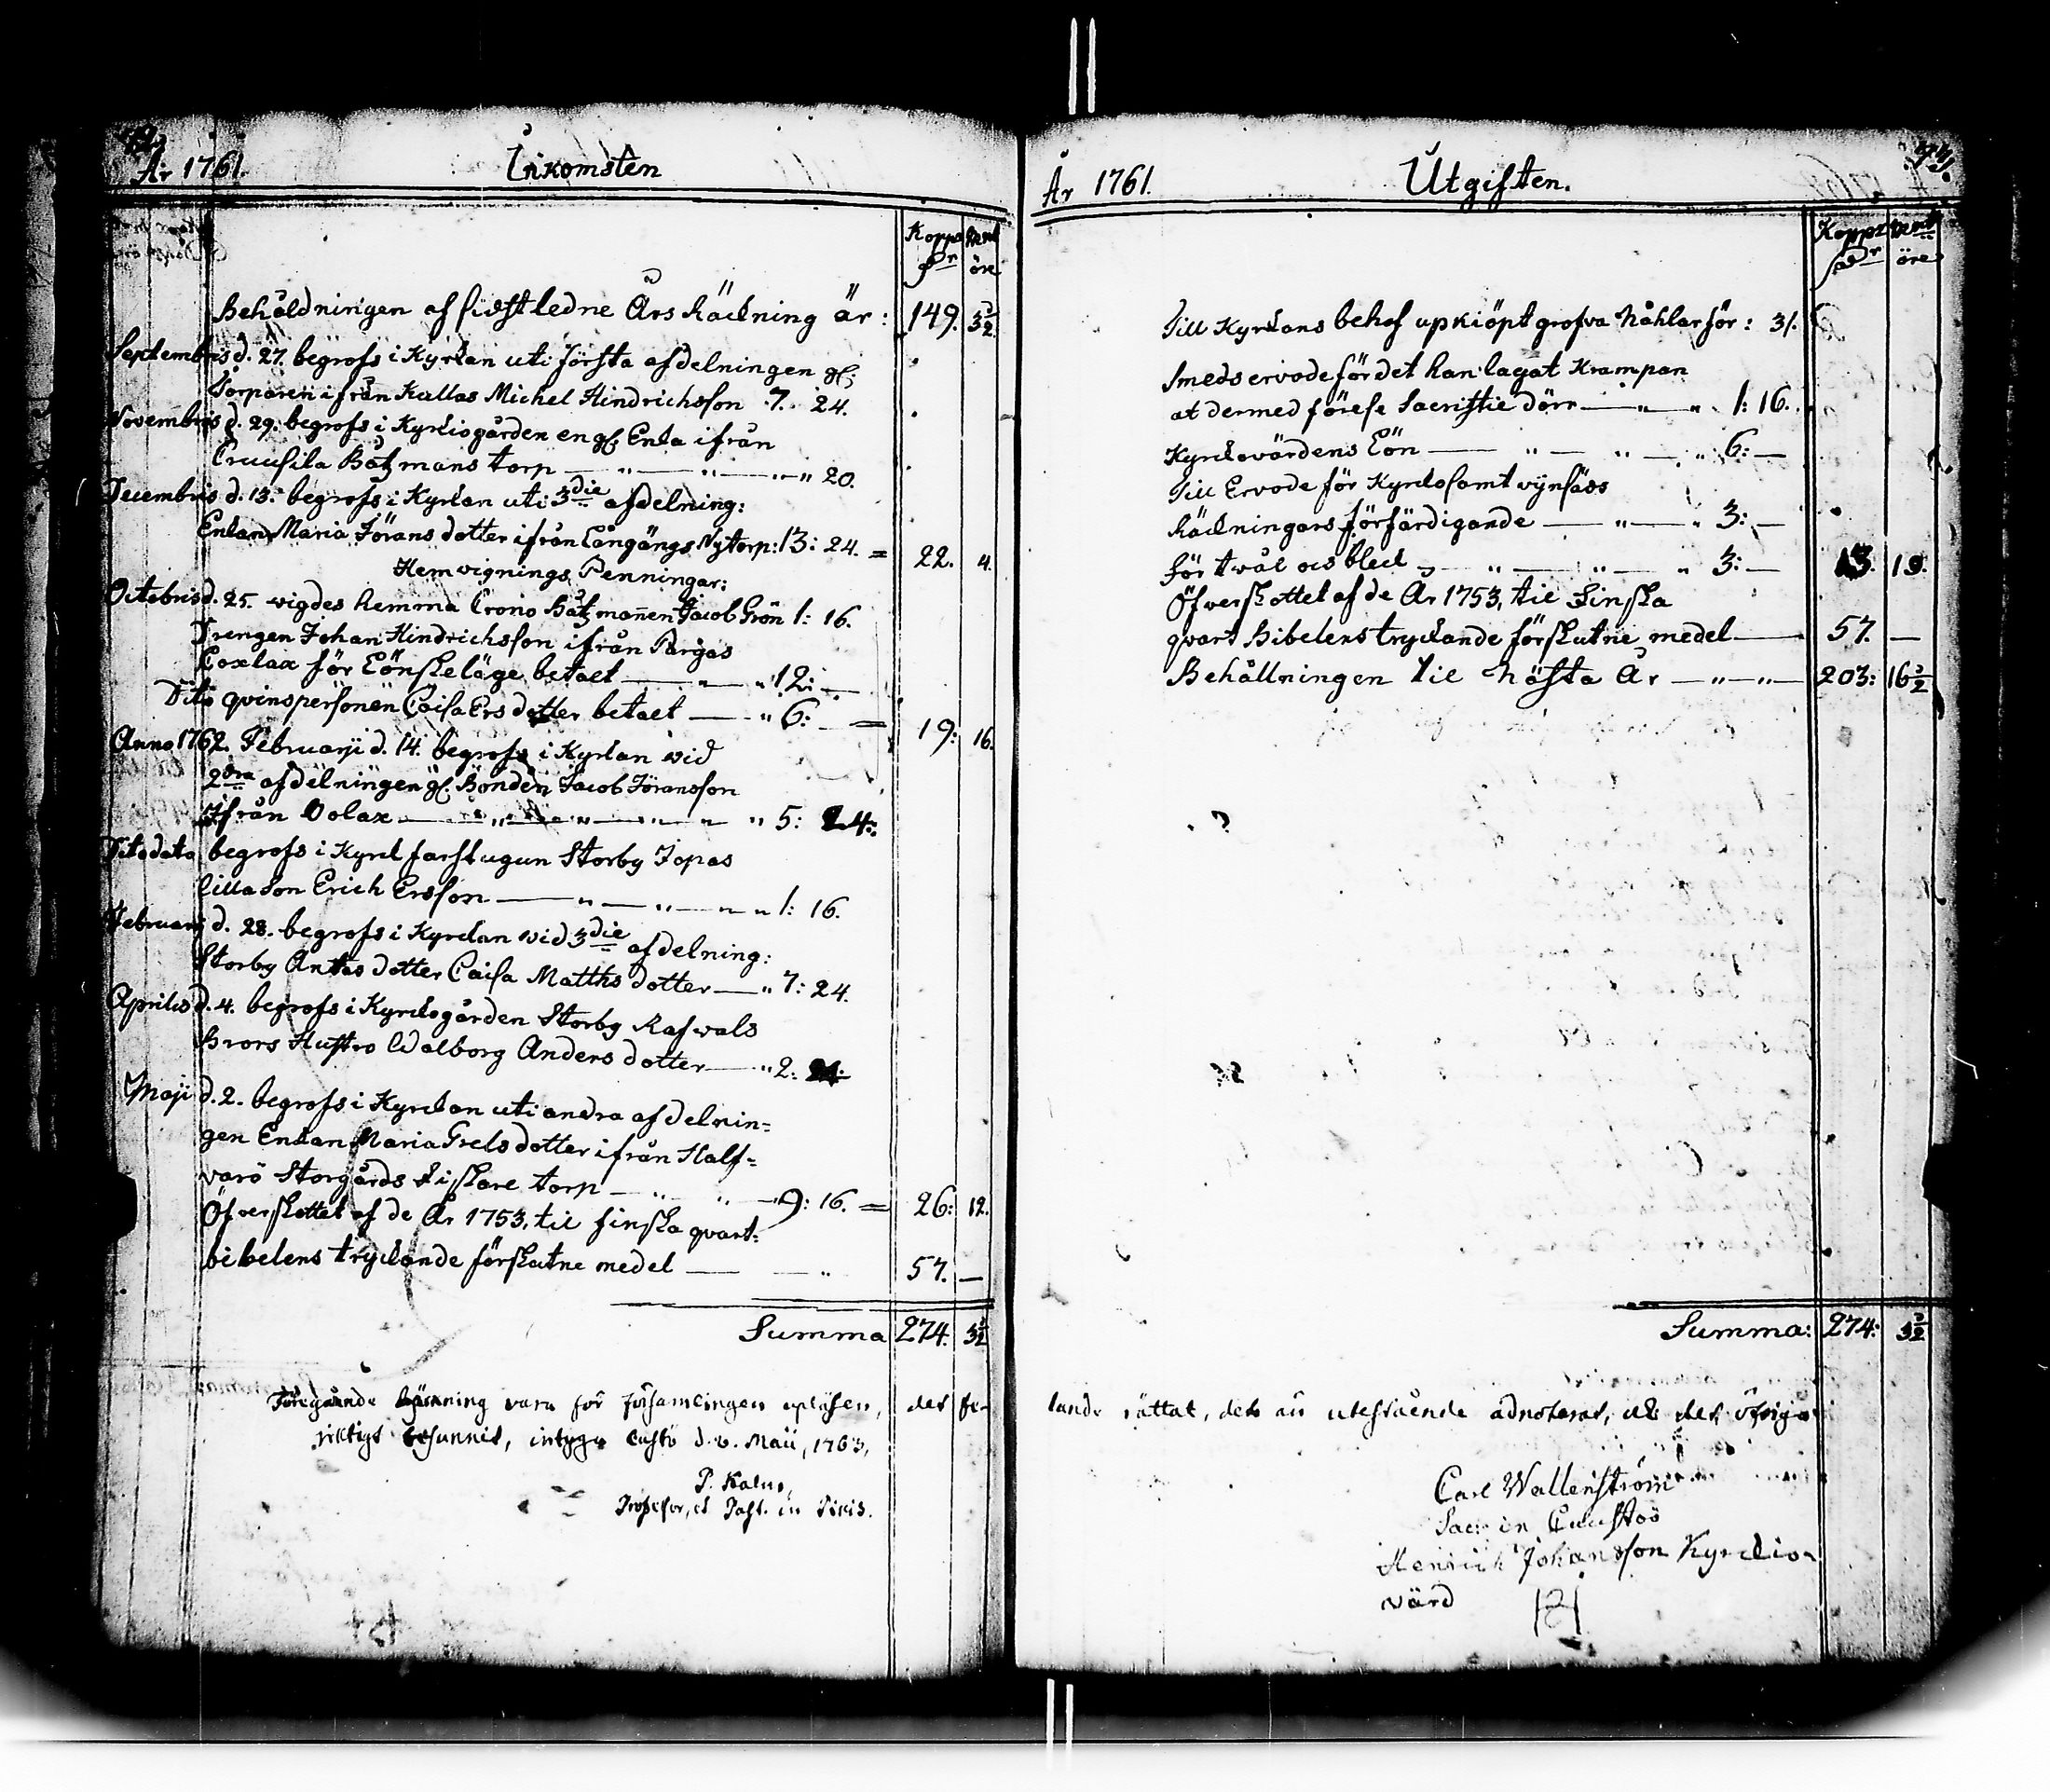 År 1761. Inkomsten
Koppr Sr
öre
Behåldningen af sidstledne Års Räckning är: 149. 3 1/2
Septembris d. 27. begrofs i Kyrkan uti första afdelningen gl:
Torparen ifrån Kullas Michel Hindrichsson 7. 24.
Novembris d. 29. begrofs i Kyrkiogården en gl. Enka ifrån
Båtzmans torp — " — " — " 20.
Decembris d. 13. begrofs i Kyrkan uti 3die afdelning:
Enkan Maria Jörans dotter ifrån Långängs Nytorp: 13: 24. = 22. 4.
Hemvignings Penningar:
Octobris d. 25. vigdes hemma Crono Båtzmannen Jacob Grön 1: 16.
Drengen Johan Hindrichsson ifrån Pargas
Loxlax för Lönskeläge betalt — " — " 12: —
Dito qvinspersonen Caisa Ers dotter betalt — " 6: — = 19: 16.
Anno 1762. Februarii d. 14. begrofs i Kyrkan vid
2dra afdelningen gl. Bonden Jacob Jöransson
Ifrån Bolax — " — " — " — " 5: 24:
Dito dato begrofs i Kyrk farstugun Storby Jopas
lilla Son Erich Ersson — " — " — " 1: 16.
Februarii d. 28. begrofs i Kyrckan vid 3die afdelning:
Storby Antas dotter Caisa Matths dotter — " 7: 24.
Aprilis d. 4. begrofs i Kyrckogården Storby Rafvals
Brors Hustro Walborg Anders dotter — " 2:
Maji d. 2. begrofs i Kyrckan uti andra afdelnin=
gen Enkan Maria Grels dotter ifrån Half=
varö Storgårds Fiskare torp — " " — 9: 16. = 26: 12.
Öfverskottet af de År 1753, til finska qvart=
bibelens tryckande förskutne medel — — " 57. —
Summa 274. 3 1/2
Föregående Räkning vara för församlingen upläsen,
riktigt befunnit, intygar Custö d. 2. Maii, 1763,
P. Kalm,
Professor, et Past. in Pikis.
År 1761. Utgiften. 73.
Koppr Sr
öre
Till Kyrkans behof upkiöpt grofva Nåhlar för: 31.
Smeds ervode för det han lagat Krampan
at dermed förese Sacristie dörr — " — " 1: 16.
Kyrckovärdens Lön — " — " — " 6: —
Till Ervode för Kyrcko samt vijnsäds
Räckningars förfärdigande — " — " 3: —
för tvål och bleck — " — " — " 3: — 13. 19.
Öfverskottet af de År 1753, til Finska
qvart Bibelens tryckande förskutne medel — 57. —
Behållningen til Nästa År — " — " — 203: 16 1/2
Summa: 274: 3 1/2
rättat, det än utestående adnoterat, det öfriga
Carl Wallenström
Sac: in Custöö
Henrich Johansson Kyrckio-
värd